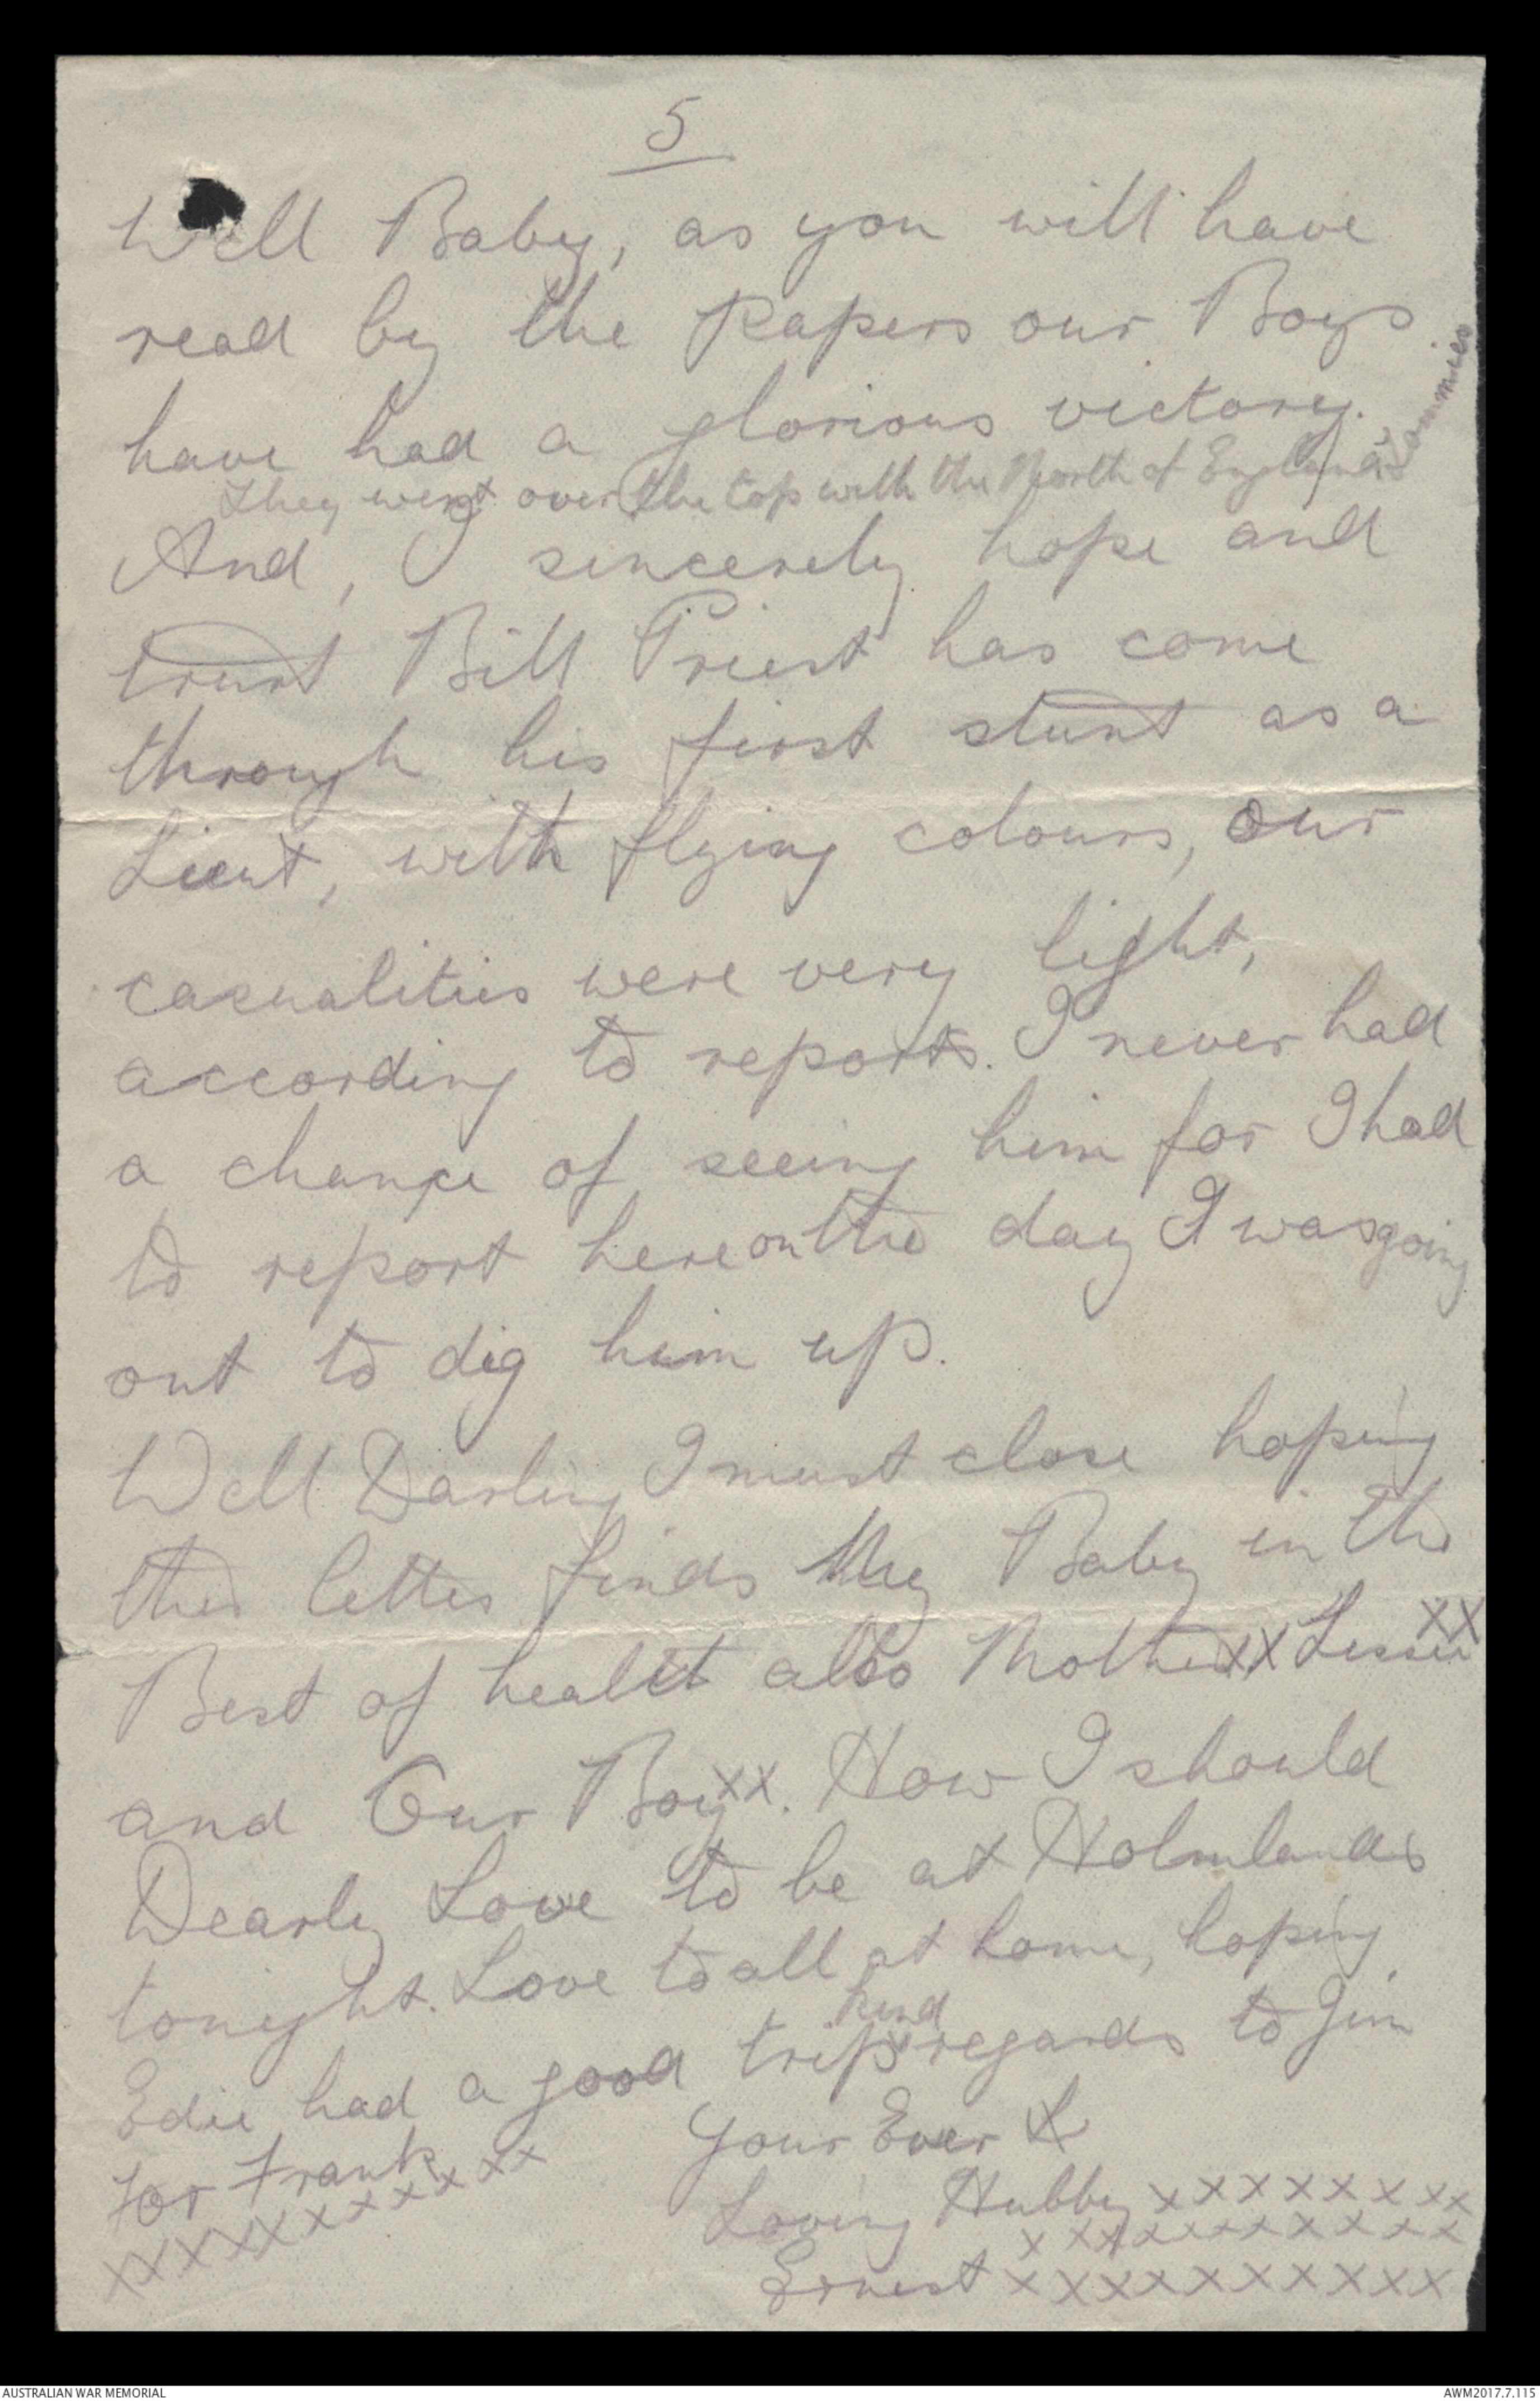 5
Well Baby, as you will have
read by the Papers our Boys
have had a glorious victory.
They went over the top with the North of England Tommies
And, I sincerely hope and
trust Bill Priest has come
through his first stunt as a
Lieut, with flying colours, our
casualities were very light,
according to reports. I never had
a chance of seeing him for I had
to report here on the day I was going
out to dig him up.
Well Darling I must close hoping
this letter finds My Baby in the
Best of health also Mother xx Lessie xx
and Our Boy xx. How I should
Dearly Love to be at Holmlands
tonight. Love to all at home, hoping
Edie had a good trip kind regards to Jim
Your Ever
For Frank
xxxxxxxxxxxx
Loving Hubby xxxxxxxxx
xxxxxxxxxxx
Ernest xxxxxxxxxxx
AUSTRALIAN WAR MEMORIAL
AWM2017.7.115